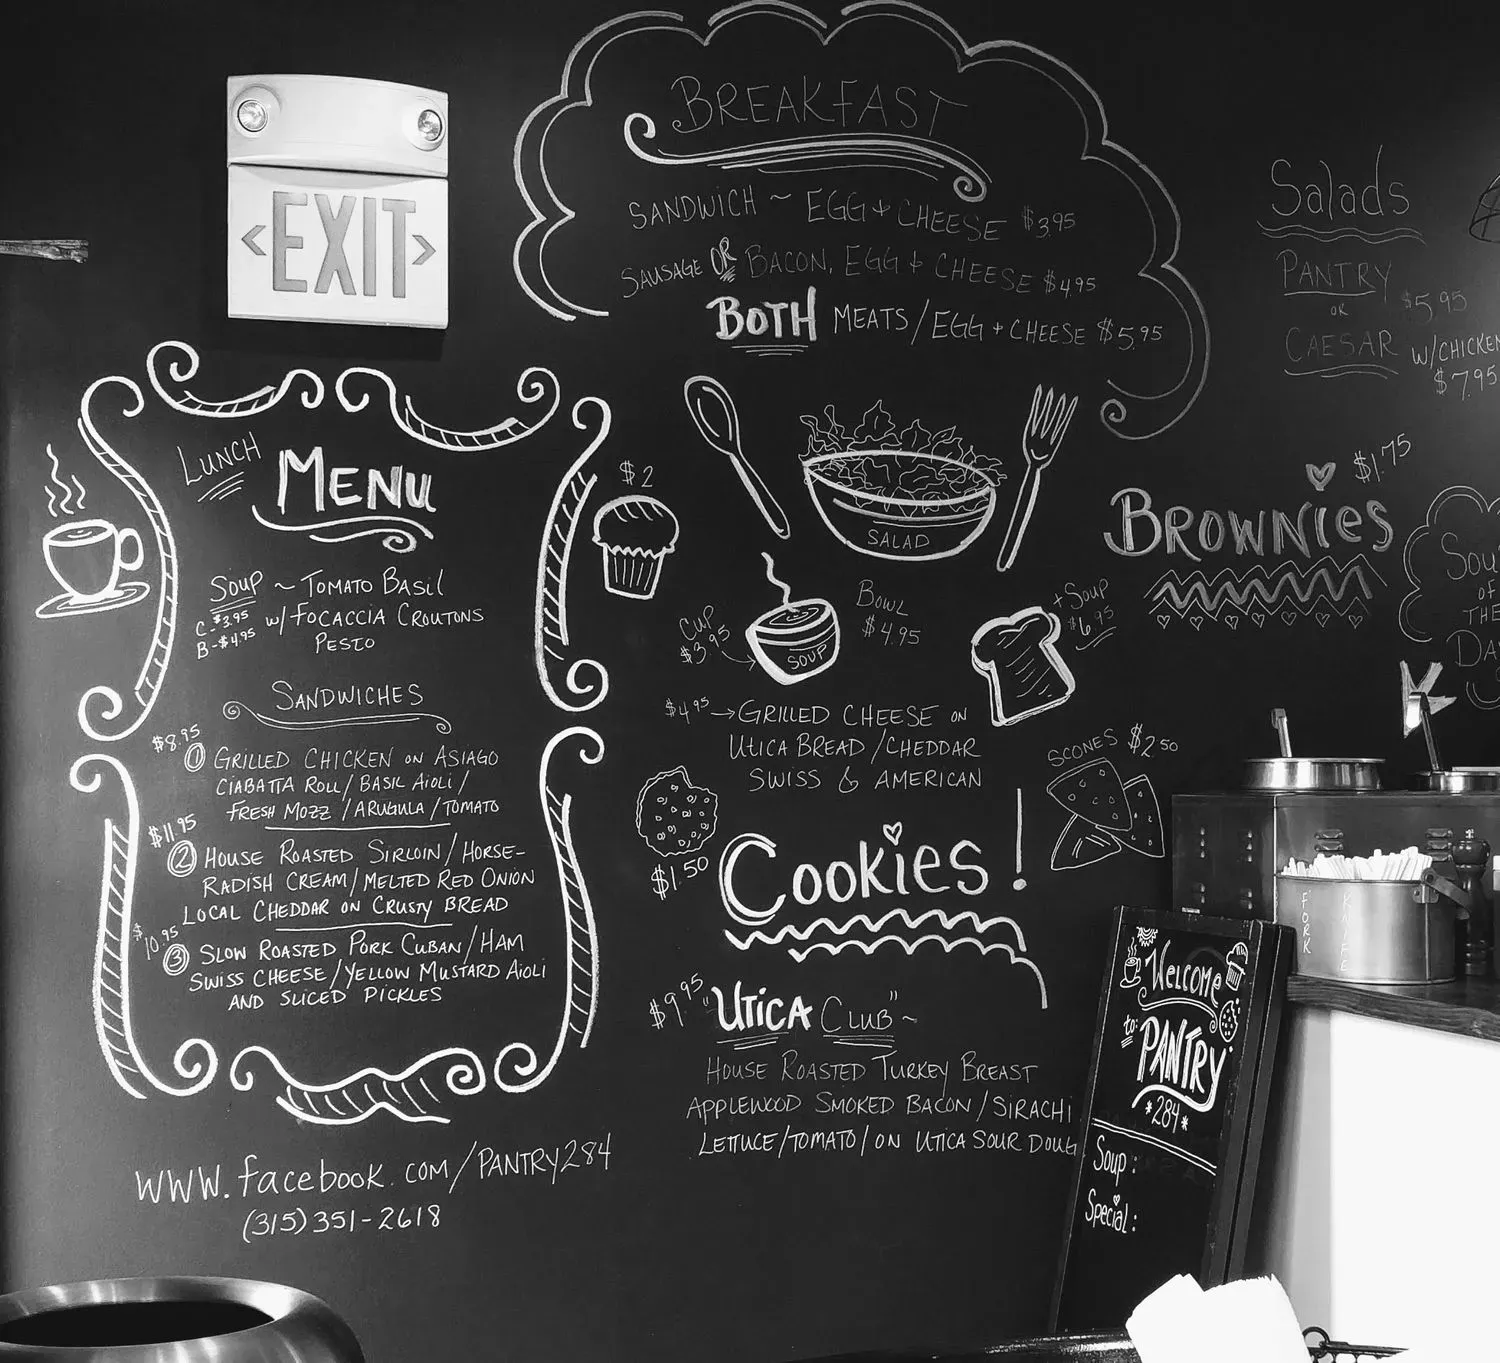 <EXIT>
BREAKFAST
SANDWICH ~ EGG + CHEESE $3.95
SAUSAGE OR BACON, EGG + CHEESE $4.95
BOTH MEATS / EGG + CHEESE $5.95
Salads
PANTRY
OR
$5.95
CAESAR
W/CHICKEN
$7.95
LUNCH
MENU
SOUP ~ TOMATO BASIL
C-$3.95 W/ FOCACCIA CROUTONS
B-$4.95 PESTO
SANDWICHES
$8.95
1 GRILLED CHICKEN ON ASIAGO
CIABATTA ROLL / BASIL AIOLI /
FRESH MOZZ / ARUGULA / TOMATO
$11.95
2 HOUSE ROASTED SIRLOIN / HORSE-
RADISH CREAM / MELTED RED ONION
LOCAL CHEDDAR ON CRUSTY BREAD
$10.95
3 SLOW ROASTED PORK CUBAN / HAM
SWISS CHEESE / YELLOW MUSTARD AIOLI
AND SLICED PICKLES
WWW.facebook.com/PANTRY284
(315) 351-2618
$2
SALAD
CUP
$3.95
SOUP
BOWL
$4.95
+ SOUP
$6.95
$4.95 → GRILLED CHEESE ON
UTICA BREAD / CHEDDAR
SWISS & AMERICAN
BROWNIES
$1.75
SOU
OF
THE
DA
SCONES $2.50
$1.50
COOKIES!
$9.95 "UTICA CLUB" ~
HOUSE ROASTED TURKEY BREAST
APPLEWOOD SMOKED BACON / SIRACHI
LETTUCE / TOMATO / ON UTICA SOUR DOUG
FORK
KNIFE
WELCOME
to:
PANTRY
*284*
Soup:
Special: